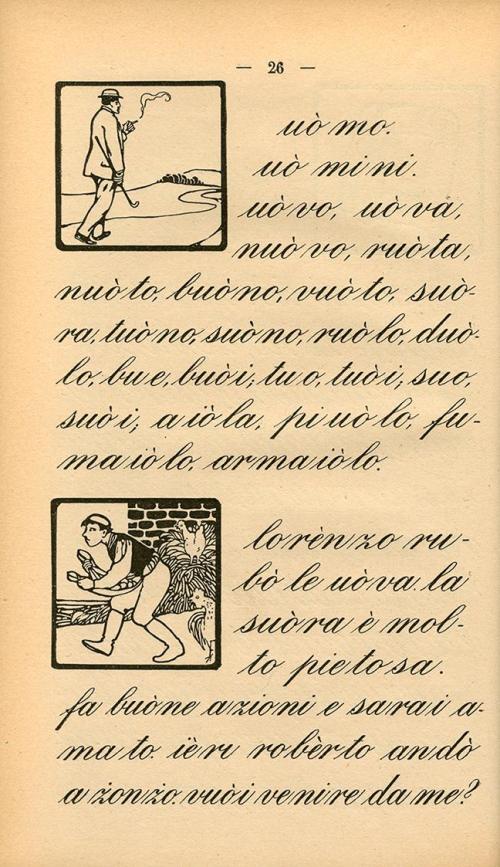 — 26 —
uò mo.
uò mi ni.
uò vo, uò va,
nuò vo, ruò ta,
nuò to, buò no, vuò to, suò-
ra, tuò no, suò no, ruò lo, duò-
lo, bu e, buò i; tu o, tuò i; su o,
suò i; a iò la, pi uò lo, fu-
ma iò lo, ar ma iò lo.
lo rèn zo ru-
bò le uò va. la
suò ra è mol-
to pie to sa.
fa buò ne a zio ni e sa ra i a-
ma to. ièri ro bèr to an dò
a żon żo. vuò i ve ni re da me?